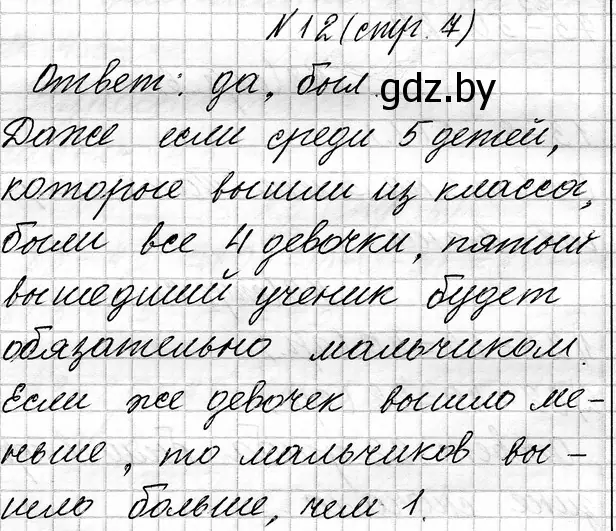 №12 (стр. 7)
Ответ: да, был.
gdz.by
Даже если среди 5 детей,
которые вышли из класса,
были все 4 девочки, пятый
вышедший ученик будет
обязательно мальчиком.
Если же девочек вышло ме-
ньше, то мальчиков вы-
шло больше, чем 1.